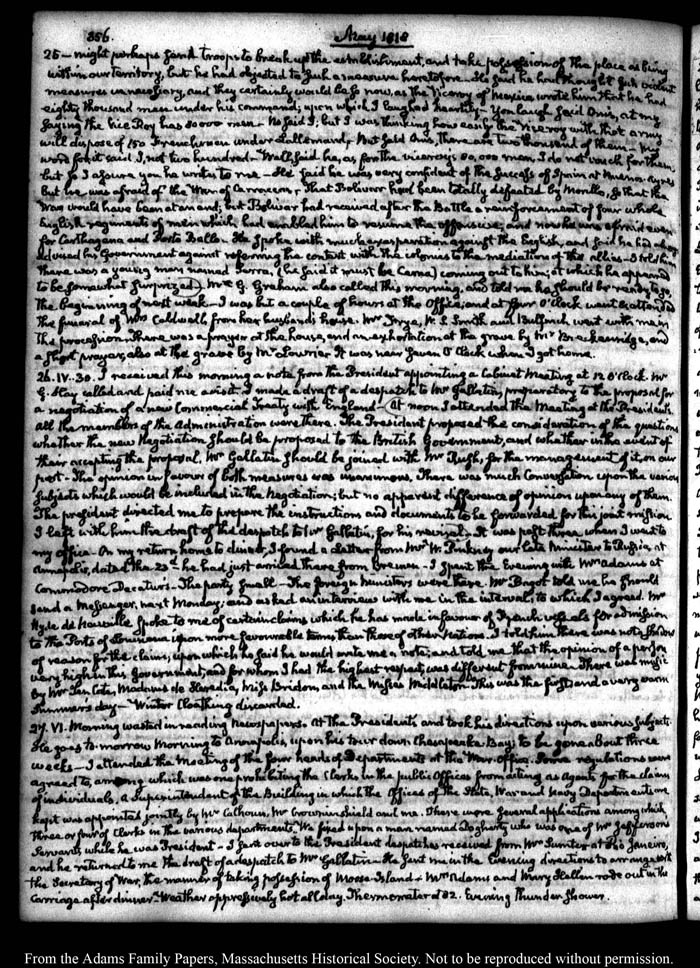 356.
May 1818
25 — might perhaps send troops to break up the establishment, and take possession of the place as being
within our territory, but he had objected to such a measure heretofore. He said he had thought such violent
measures unnecessary, and they certainly would be so now, as the Viceroy of Mexico wrote him that he had
eighty thousand men under his command; upon which I laughed heartily — You laugh said Onis, at my
saying the Vice Roy has 80000 men — No said I; but I was thinking how easily the Viceroy with that army
will dispose of 150 Frenchmen under Lallemand. Not said Onis, There are two thousand of them — My
word for it said I, not two hundred — Well, said he, as for the viceroy's 80,000 men, I do not vouch for them,
but so I assure you he writes to me — He said he was very confident of the success of Spain at Buenos-Ayres
but he was afraid of the War of Carraccas, That Bolivar had been totally defeated by Morillo, so that the
War would have been at an end; but Bolivar had received after the Battle a reinforcement of four whole
English regiments of men which had enabled him to resume the offensive, and now he was afraid even
for Carthagena and Porto Bello. He spoke with much exasperation against the English, and said he had always
advised his Government against referring the contest with the colonies to the mediation of the allies — I told him
there was a young man named Serra, (he said it must be Correa) coming out to him; at which he appeared
to be somewhat surprized. Mr G. Graham also called this morning, and told me he should be ready to go
the beginning of next week — I was but a couple of hours at the Office; and at four O'Clock went & attended
the funeral of Mrs Caldwell, from her husband's house. Mr Forge, W. S. Smith and Bulfinch went with me in
the procession. There was a prayer at the house, and an exhortation at the grave by Mr Breckenridge, and
a short prayer also at the grave by Mr Lowrie. It was near seven O'Clock when I got home.
26. IV:30. I received this morning a note from the President appointing a Cabinet Meeting at 12 O'Clock. Mr
G. Hay called and paid me a visit. I made a draft of a despatch to Mr Gallatin, preparatory to the proposal for
a negotiation of a new Commercial Treaty with England — At noon I attended the Meeting at the President's
all the members of the Administration were there. The President proposed the consideration of the questions
whether the new Negotiation should be proposed to the British Government, and whether in the event of
their accepting the proposal, Mr Gallatin should be joined with Mr Rush, for the management of it, on our
part — The opinion in favour of both measures was unanimous. There was much Conversation upon the various
subjects which would be included in the Negotiation; but no apparent difference of opinion upon any of them.
The president directed me to prepare the instructions and documents to be forwarded for this joint mission
I left with him the draft of the despatch to Mr Gallatin, for his revisal. It was past three when I went to
my office. On my return home to dinner, I found a letter from Mr W. Pinkney our late Minister to Russia, at
Annapolis, dated the 23d he had just arrived there from Bremen — I spent the evening with Mrs Adams at
Commodore Decatur's — The party small — The foreign Ministers were there. Mr Bagot told me he should
send a Messenger, next Monday; and asked an interview with me in the interval; to which I agreed. Mr
Hyde de Neuville spoke to me of certain claims which he has made in favour of French vessels for admission
to the Ports of Louisiana upon more favourable terms than those of other Nations. I told him there was not a shadow
of reason for the claim; upon which he said he would write me a note; and told me that the opinion of a person
very high in this Government, and for whom I had the highest respect, was different from mine. There was music
by Mr Ten Cate, Madame de Heredia, Miss Brisdon, and the Misses Middleton. This was the first, and a very warm
Summer's day — Winter Cloathing discarded.
27. VI. Morning wasted in reading Newspapers. At the President's and took his directions upon various subjects.
He goes to-morrow Morning to Annapolis, upon his tour down Chesapeake Bay; to be gone about three
weeks — I attended the Meeting of the four heads of Departments at the War Office. Some regulations were
agreed to, among which was one prohibiting the Clerks in the public Offices from acting as Agents for the claims
of individuals. A Superintendent of the Building in which the Offices of the State, War and Navy Departments are
kept was appointed jointly by Mr Calhoun, Mr Crowninshield and me. There were several applications among which
three or four of Clerks in the various departments. We fixed upon a man named Dogherty who was one of Mr Jefferson's
Servants while he was President — I sent over to the President despatches received from Mr Sumter at Rio Janeiro,
and he returned to me the draft of a despatch to Mr Gallatin — He sent me in the Evening directions to arrange with
the Secretary of War, the manner of taking possession of Moose-Island — Mrs Adams and Mary Hellen rode out in the
Carriage after dinner — Weather oppressively hot all day. Thermometer at 82. Evening Thunder Shower.
From the Adams Family Papers, Massachusetts Historical Society. Not to be reproduced without permission.